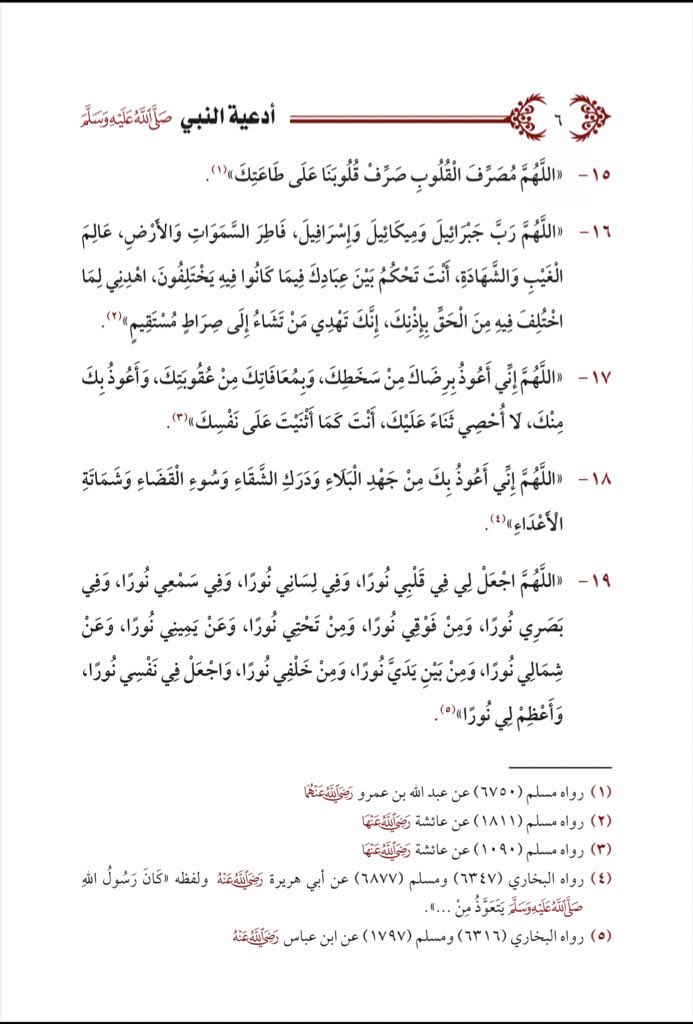 ٦ أدعية النبي صَلَّى اللَّهُ عَلَيْهِ وَسَلَّمَ
١٥- «اللَّهُمَّ مُصَرِّفَ الْقُلُوبِ صَرِّفْ قُلُوبَنَا عَلَى طَاعَتِكَ»(١).
١٦- «اللَّهُمَّ رَبَّ جَبْرَائِيلَ وَمِيكَائِيلَ وَإِسْرَافِيلَ، فَاطِرَ السَّمَوَاتِ وَالأَرْضِ، عَالِمَ
الْغَيْبِ وَالشَّهَادَةِ، أَنْتَ تَحْكُمُ بَيْنَ عِبَادِكَ فِيمَا كَانُوا فِيهِ يَخْتَلِفُونَ، اهْدِنِي لِمَا
اخْتُلِفَ فِيهِ مِنَ الْحَقِّ بِإِذْنِكَ، إِنَّكَ تَهْدِي مَنْ تَشَاءُ إِلَى صِرَاطٍ مُسْتَقِيمٍ»(٢).
١٧- «اللَّهُمَّ إِنِّي أَعُوذُ بِرِضَاكَ مِنْ سَخَطِكَ، وَبِمُعَافَاتِكَ مِنْ عُقُوبَتِكَ، وَأَعُوذُ بِكَ
مِنْكَ، لَا أُحْصِي ثَنَاءً عَلَيْكَ، أَنْتَ كَمَا أَثْنَيْتَ عَلَى نَفْسِكَ»(٣).
١٨- «اللَّهُمَّ إِنِّي أَعُوذُ بِكَ مِنْ جَهْدِ الْبَلَاءِ وَدَرَكِ الشَّقَاءِ وَسُوءِ الْقَضَاءِ وَشَمَاتَةِ
الْأَعْدَاءِ»(٤).
١٩- «اللَّهُمَّ اجْعَلْ لِي فِي قَلْبِي نُورًا، وَفِي لِسَانِي نُورًا، وَفِي سَمْعِي نُورًا، وَفِي
بَصَرِي نُورًا، وَمِنْ فَوْقِي نُورًا، وَمِنْ تَحْتِي نُورًا، وَعَنْ يَمِينِي نُورًا، وَعَنْ
شِمَالِي نُورًا، وَمِنْ بَيْنِ يَدَيَّ نُورًا، وَمِنْ خَلْفِي نُورًا، وَاجْعَلْ فِي نَفْسِي نُورًا،
وَأَعْظِمْ لِي نُورًا»(٥).
(١) رواه مسلم (٦٧٥٠) عن عبد الله بن عمرو رَضِيَ اللَّهُ عَنْهُمَا
(٢) رواه مسلم (١٨١١) عن عائشة رَضِيَ اللَّهُ عَنْهَا
(٣) رواه مسلم (١٠٩٠) عن عائشة رَضِيَ اللَّهُ عَنْهَا
(٤) رواه البخاري (٦٣٤٧) ومسلم (٦٨٧٧) عن أبي هريرة رَضِيَ اللَّهُ عَنْهُ ولفظه «كَانَ رَسُولُ اللهِ
صَلَّى اللَّهُ عَلَيْهِ وَسَلَّمَ يَتَعَوَّذُ مِنْ ...».
(٥) رواه البخاري (٦٣١٦) ومسلم (١٧٩٧) عن ابن عباس رَضِيَ اللَّهُ عَنْهُ